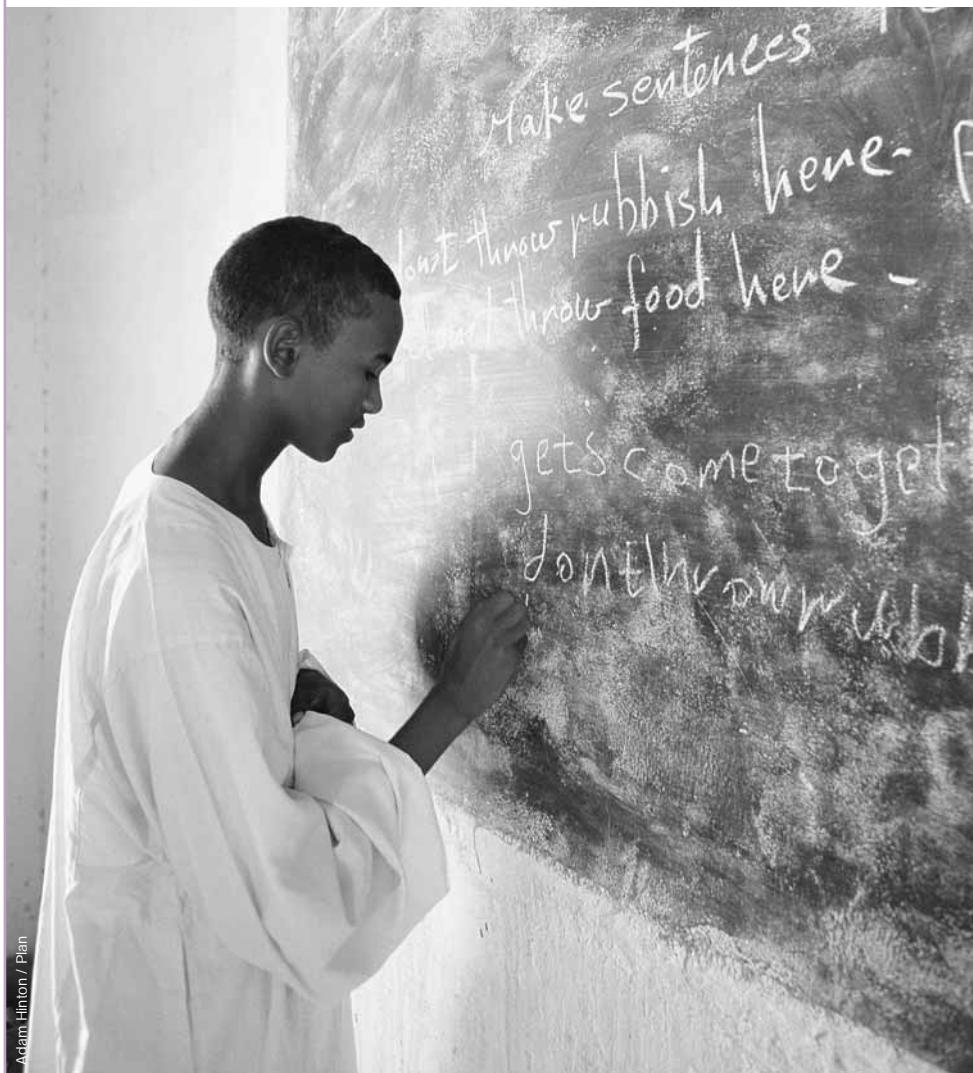 Make sentences
dont throw rubbish here-
dont throw food here -
gets come to get
dont throw rubbish
Adam Hinton / Plan